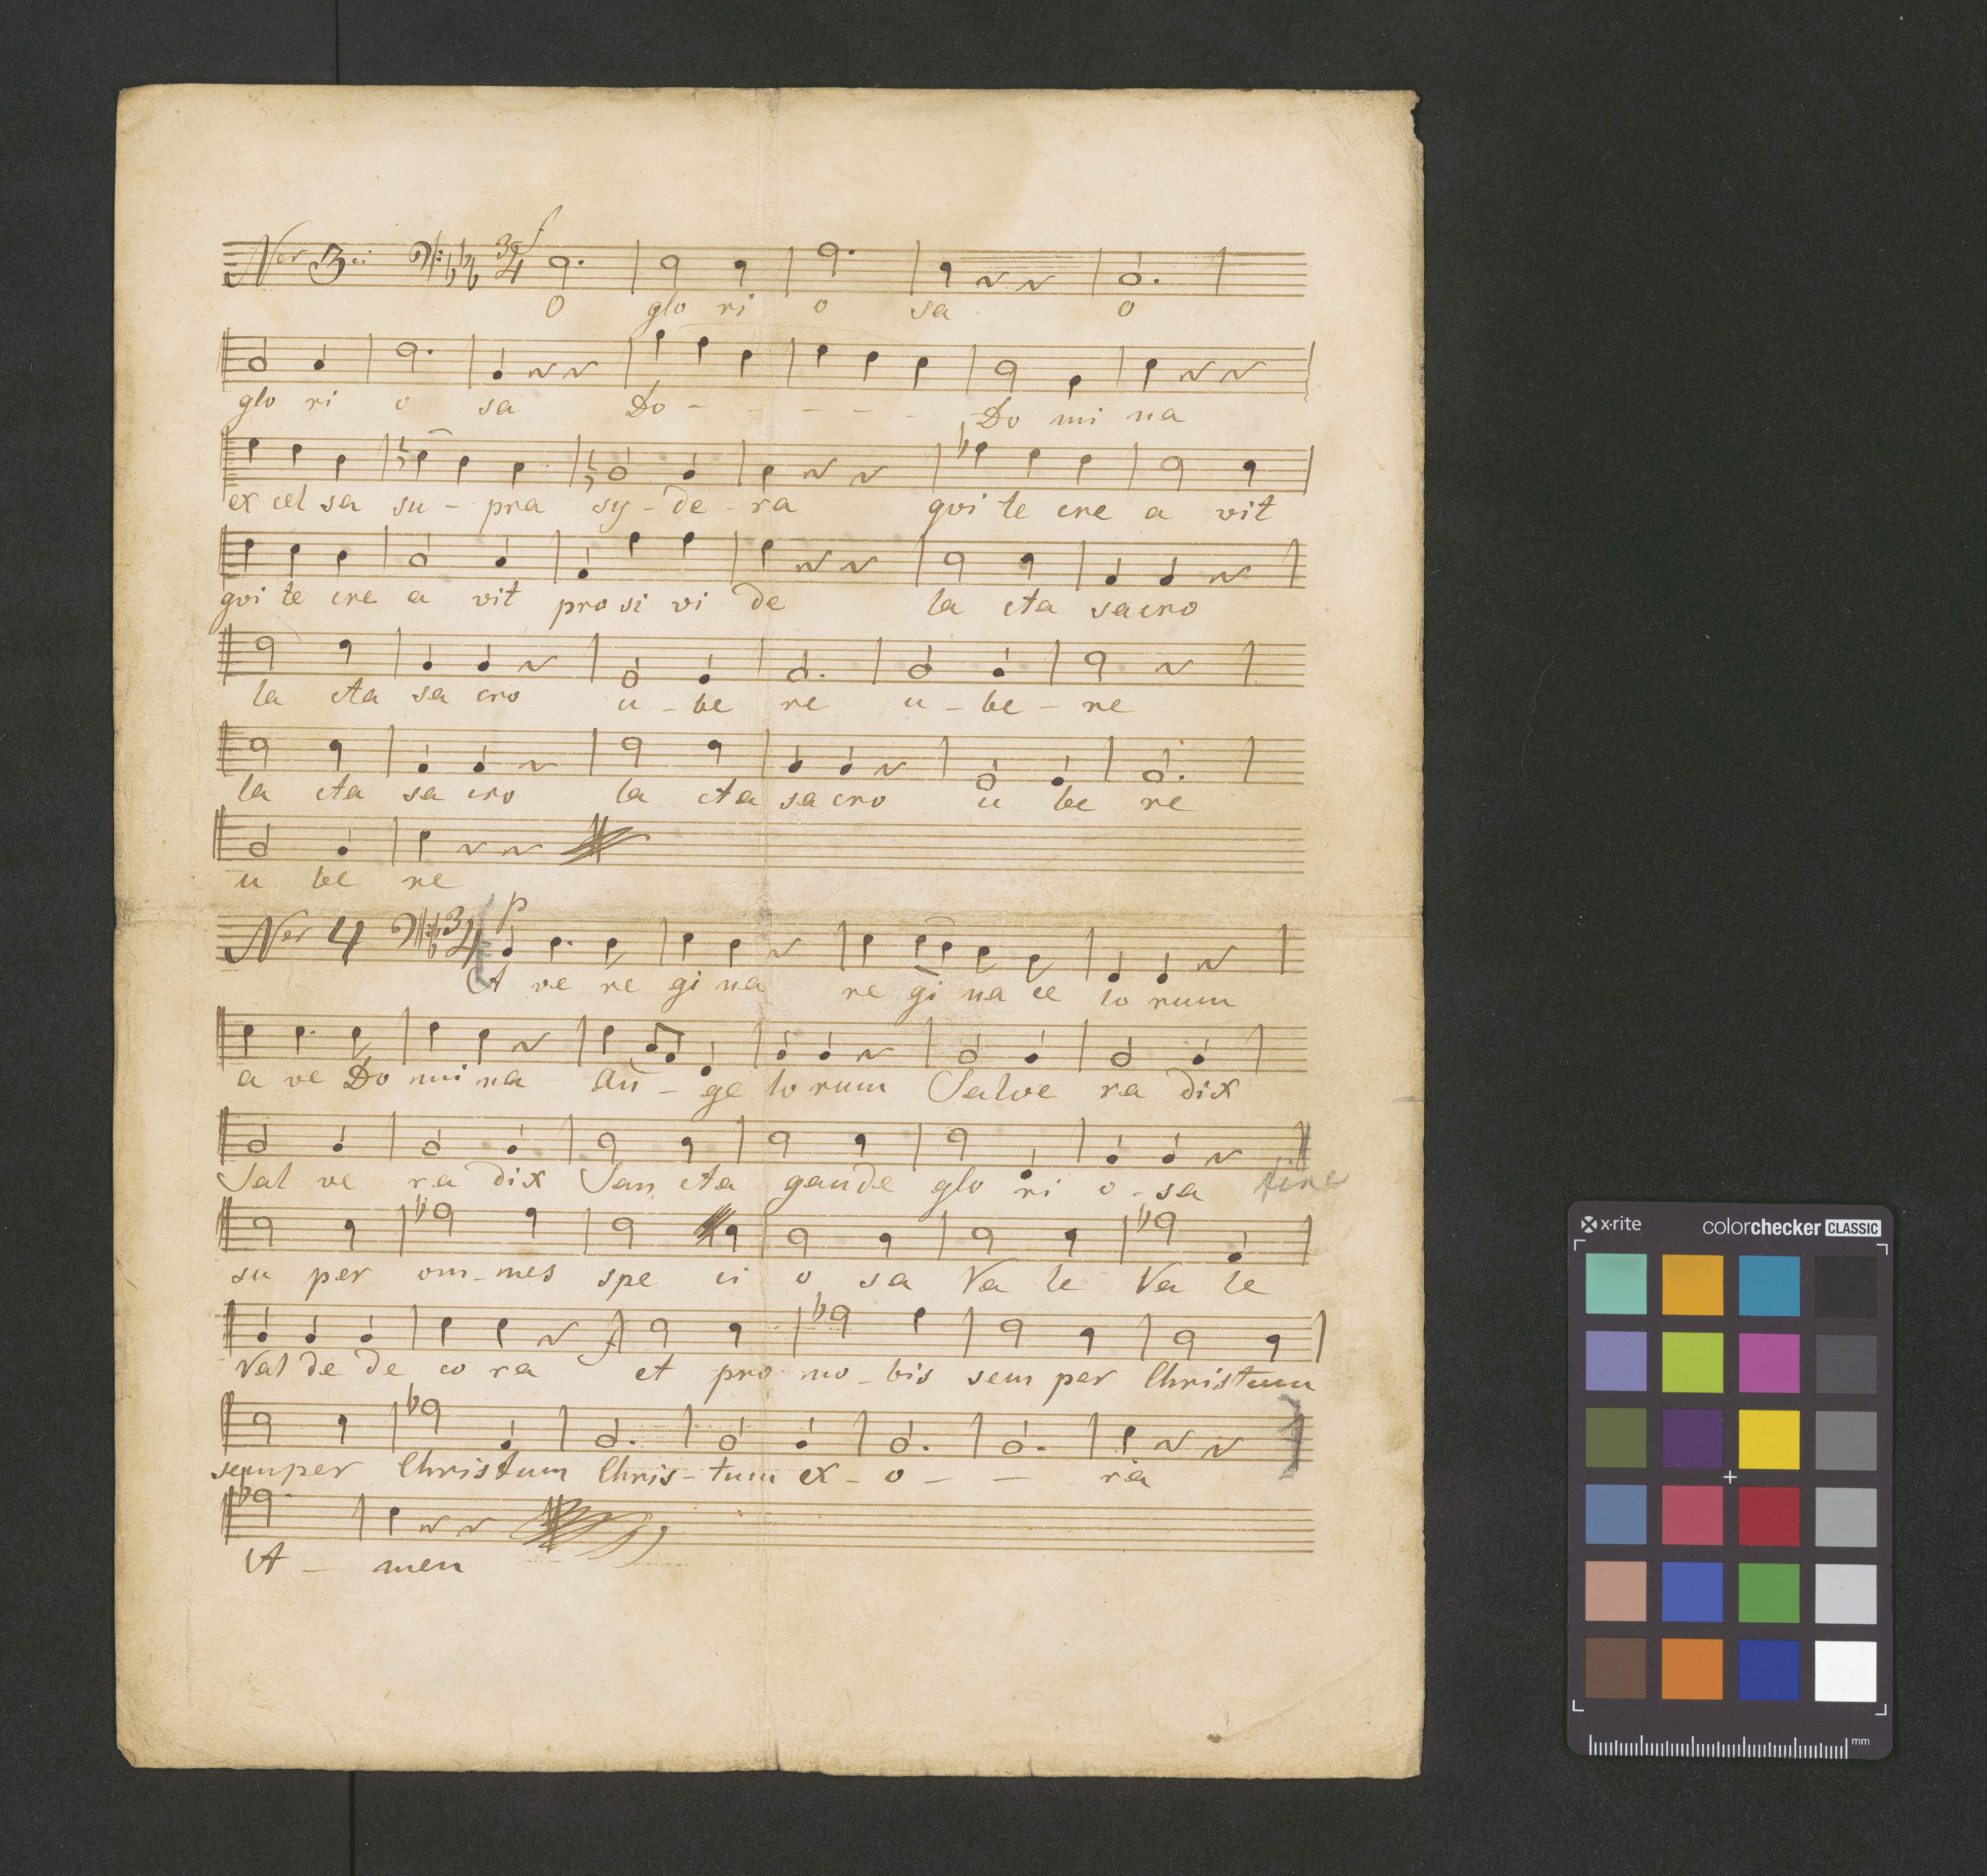 Ner 3ii 3/4 f
O glo ri o sa o
glo ri o sa Do - - - - - Do mi na
ex cel sa su - pra sy - de - ra qvi te cre a vit
qvi te cre a vit pro si vi de la cta sacro
la cta sa cro u - be re u - be - re
la cta sa cro la cta sa cro u be re
u be re
Ner 4 3/4 p
A ve re gi na re gi na ce lo rum
a ve Do mi na an - ge lo rum Salve ra dix
Sal ve ra dix San cta gaude glo ri o - sa fine
su per om - mes spe ci o sa Va le Va le
Val de de co ra et pro no - bis sem per Christum
semper Christum Chris - tum ex - o - - ra
A - men
x·rite colorchecker CLASSIC
mm